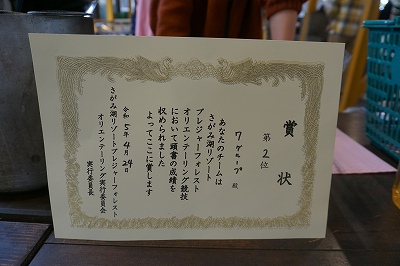 賞状
第2位
7グループ 殿
あなたのチームは
さがみ湖リゾート
プレジャーフォレスト
オリエンテーリング競技
において頭書の成績を
収められました
よってここに賞します
令和5年4月24日
さがみ湖リゾートプレジャーフォレスト
オリエンテーリング実行委員会
実行委員長